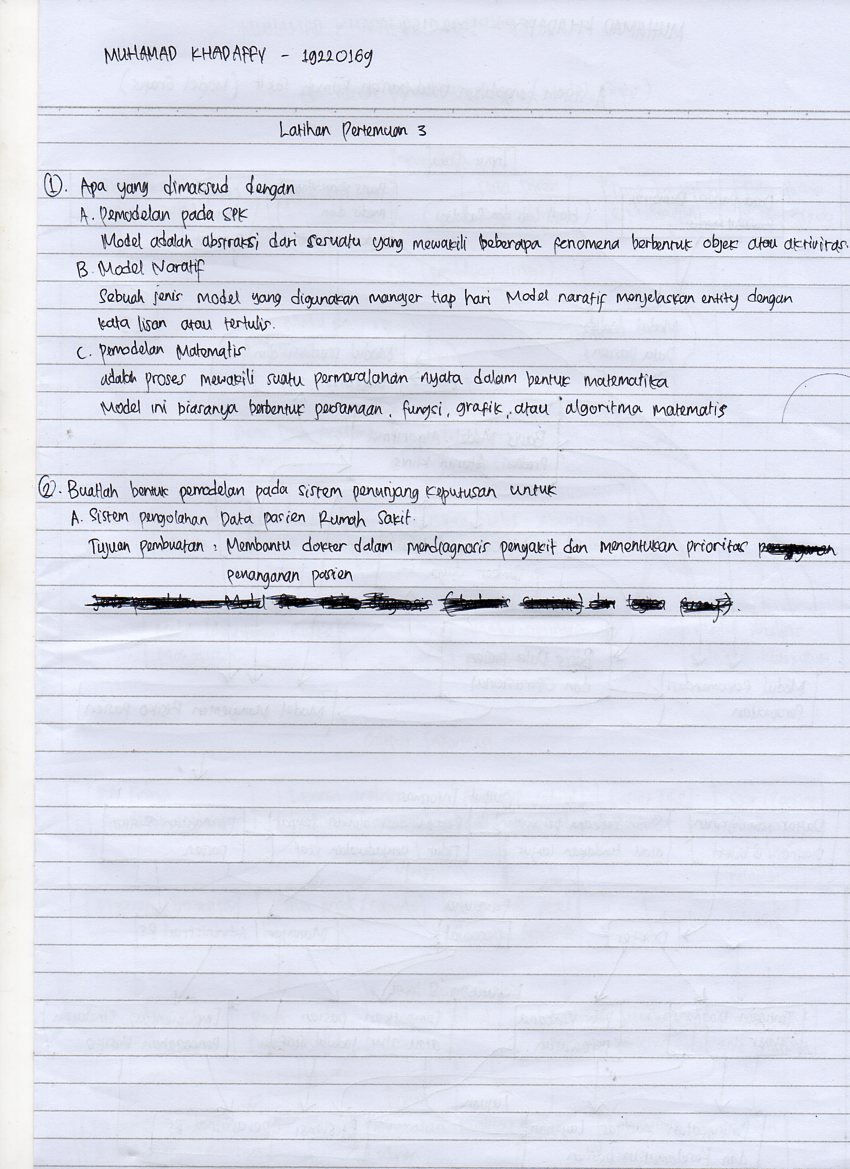 MUHAMAD KHADAFFY - 19220169
Latihan Pertemuan 3
1. Apa yang dimaksud dengan
A. Pemodelan pada SPK
Model adalah abstraksi dari sesuatu yang mewakili beberapa fenomena berbentuk objek atau aktivitas.
B. Model Naratif
Sebuah jenis Model yang digunakan manajer tiap hari Model naratif menjelaskan entity dengan
kata lisan atau tertulis.
C. Pemodelan Matematis
adalah proses mewakili suatu permasalahan nyata dalam bentuk matematika
Model ini biasanya berbentuk persamaan, fungsi, grafik, atau algoritma matematis
2. Buatlah bentuk pemodelan pada sistem penunjang keputusan untuk
A. Sistem pengolahan Data pasien Rumah Sakit.
Tujuan pembuatan : Membantu dokter dalam mendiagnosis penyakit dan menentukan prioritas
penanganan pasien